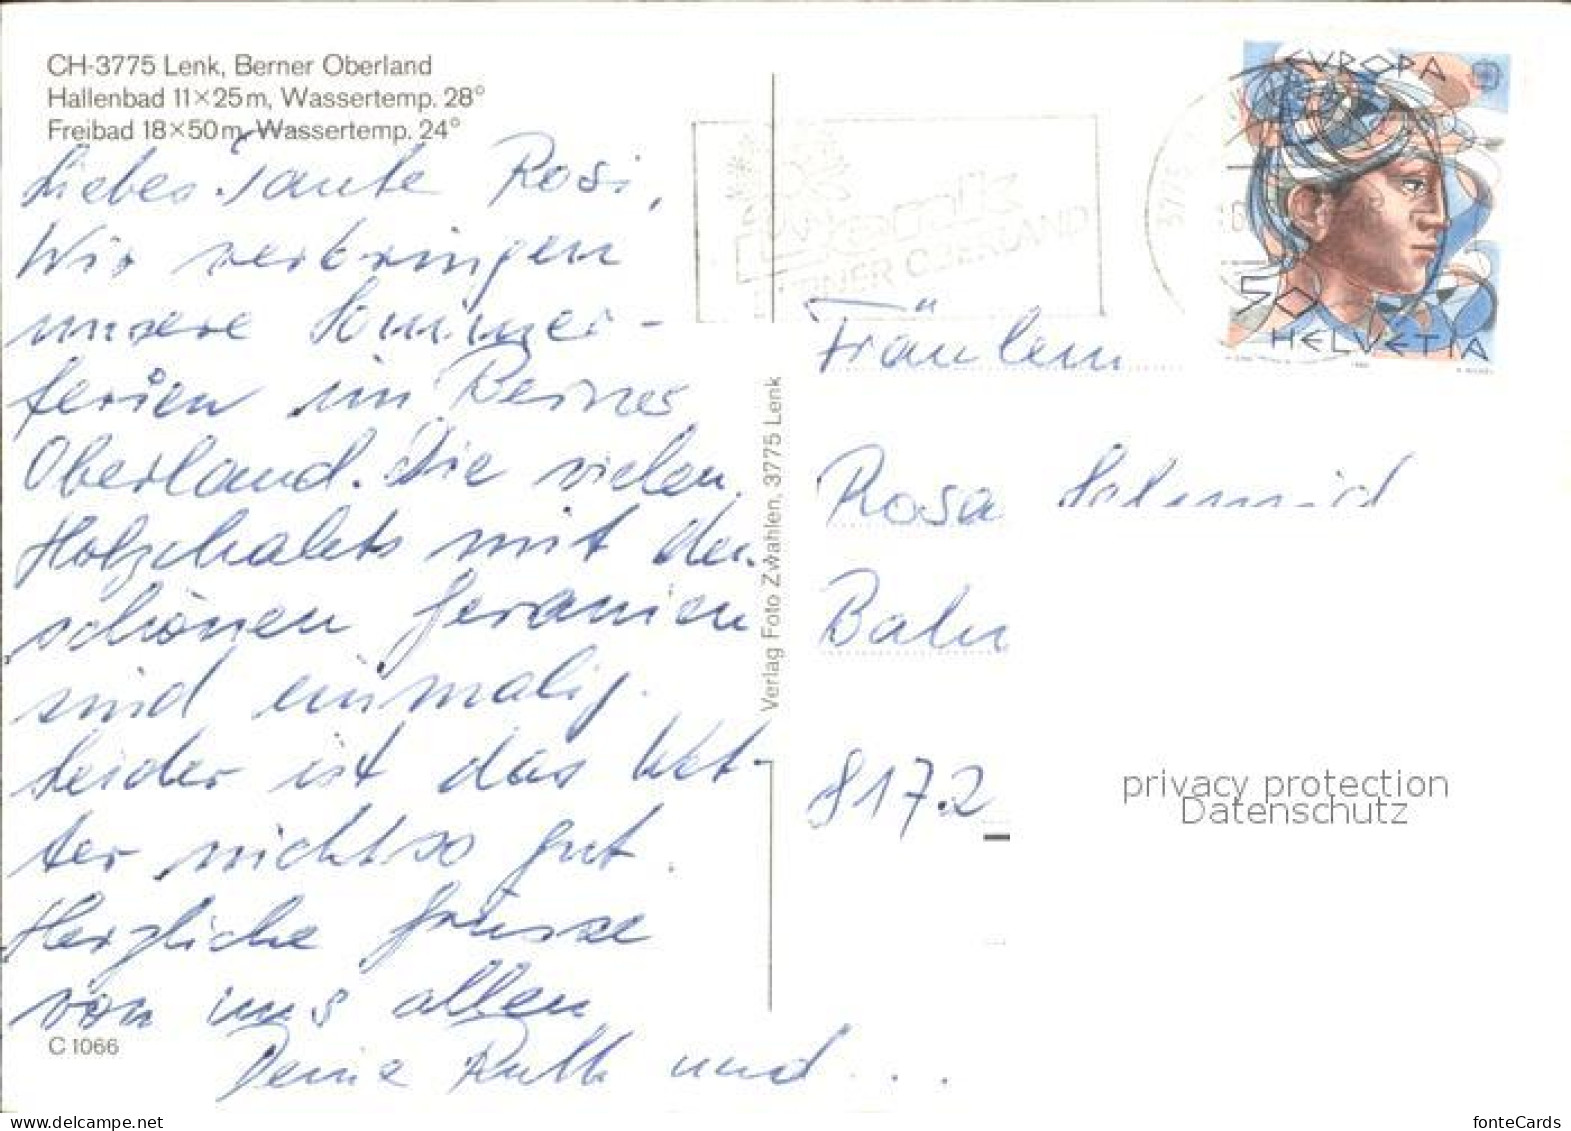 CH-3775 Lenk, Berner Oberland
Hallenbad 11×25m, Wassertemp. 28°
Freibad 18×50m, Wassertemp. 24°
Liebes Tante Rosi,
Wir verbringen
unsere Sommer-
ferien im Berner
Oberland. Die vielen
Holzchalets mit den
schönen Geranien
sind einmalig.
Leider ist das Wet-
ter nicht so gut.
Herzliche Grüsse
von uns allen
Deine Ruth und ...
C 1066
Verlag Foto Zwahlen, 3775 Lenk
BERNER OBERLAND
EVROPA
50
HELVETIA
Fräulein
Rosa Schmid
8172
privacy protection
Datenschutz
fonteCards